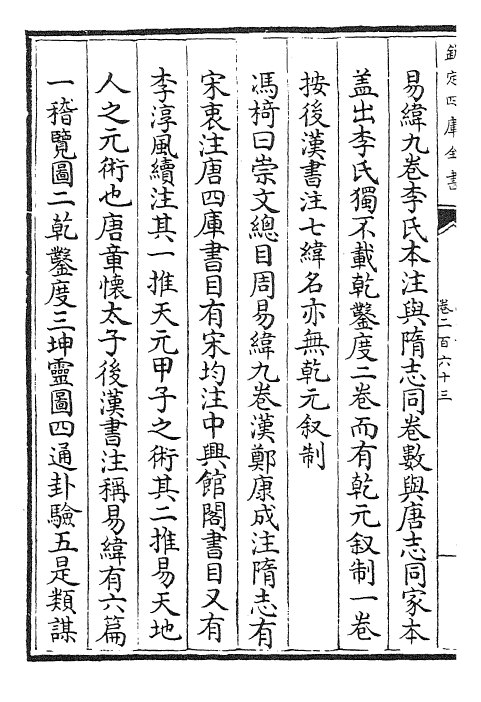 欽定四庫全書
卷二百六十三
易緯九卷李氏本注與隋志同卷數與唐志同家本
蓋出李氏獨不載乾鑿度二卷而有乾元叙制一卷
按後漢書注七緯名亦無乾元叙制
馮椅曰崇文總目周易緯九卷漢鄭康成注隋志有
宋衷注唐四庫書目有宋均注中興館閣書目又有
李淳風續注其一推天元甲子之術其二推易天地
人之元術也唐章懷太子後漢書注稱易緯有六篇
一稽覽圖二乾鑿度三坤靈圖四通卦驗五是類謀